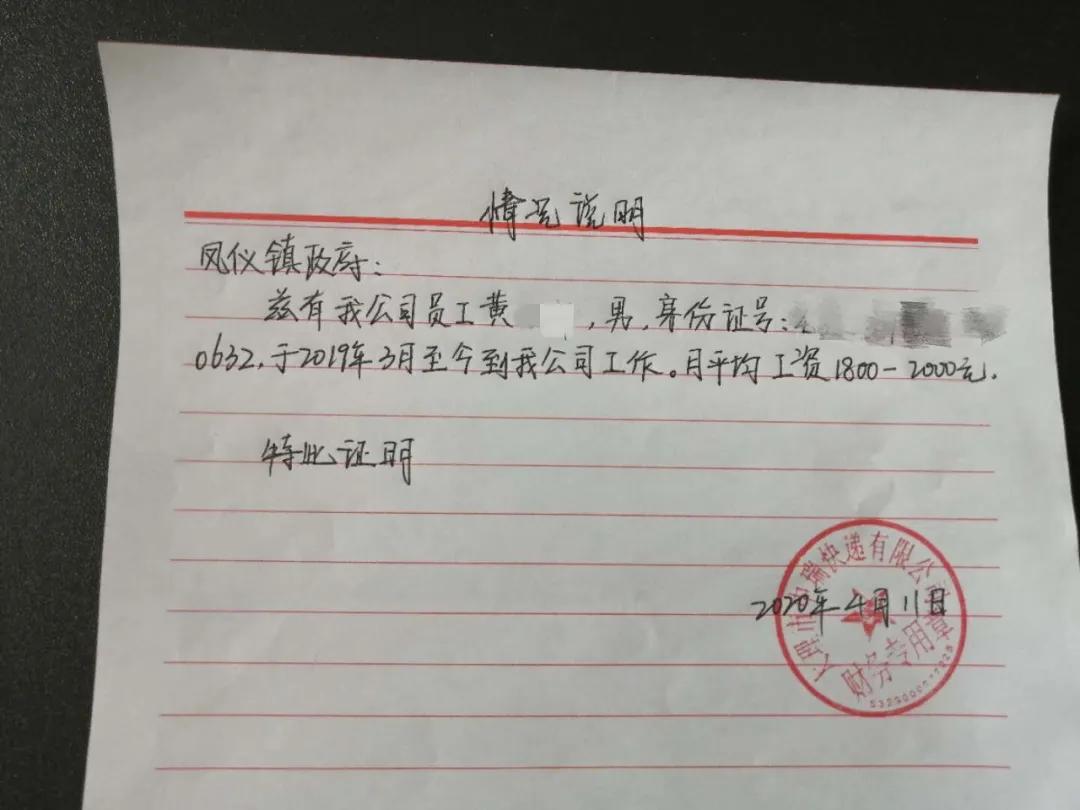 情况说明
凤仪镇政府：
兹有我公司员工黄 ，男，身份证号：
0632，于2019年3月至今到我公司工作。月平均工资1800－2000元.
特此证明
2020年4月11日
瑞快递有限公司
财务专用章